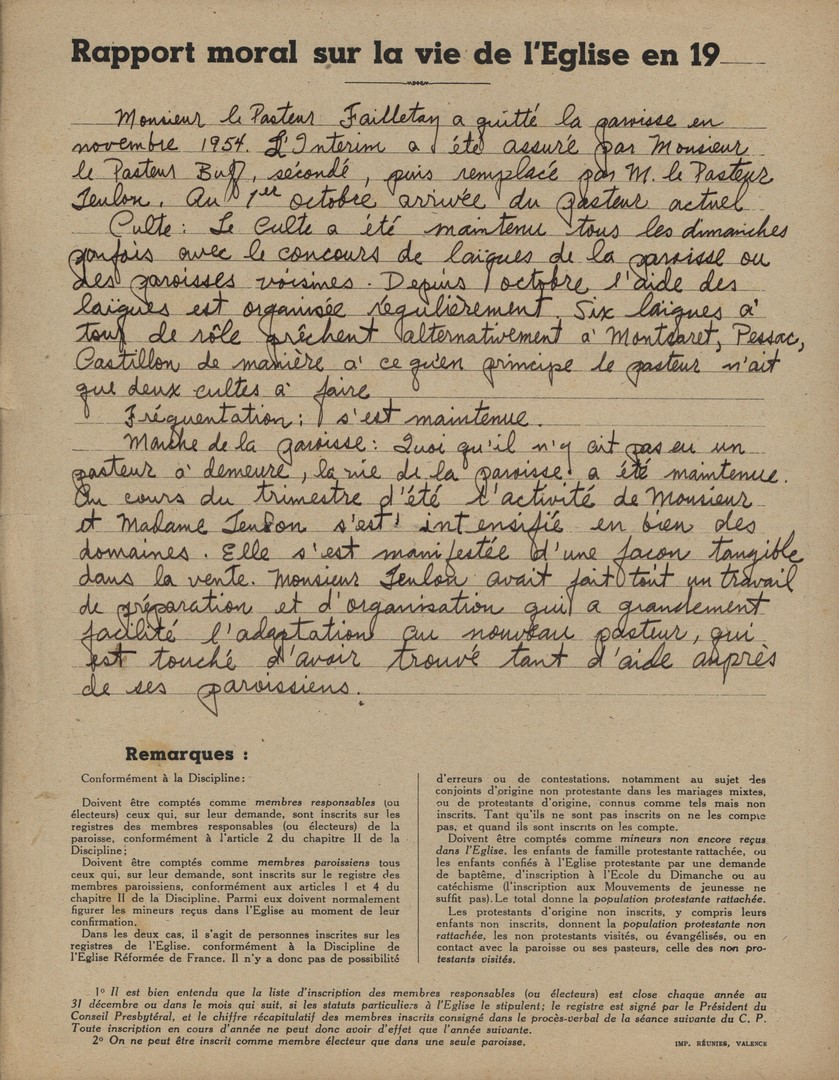 Rapport moral sur la vie de l'Eglise en 19
Monsieur le Pasteur Failletaz a quitté la paroisse en
novembre 1954. L'Interim a été assuré par Monsieur
le Pasteur Buff, secondé, puis remplacé par M. le Pasteur
Teulon. Au 1er octobre arrivée du pasteur actuel
Culte : Le Culte a été maintenu tous les dimanches
parfois avec le concours de laïques de la paroisse ou
des paroisses voisines. Depuis 1 octobre l'aide des
laïques est organisée régulièrement. Six laïques à
tour de rôle prêchent alternativement à Montcaret, Pessac,
Castillon de manière à ce qu'en principe le pasteur n'ait
que deux cultes à faire
Fréquentation : s'est maintenue.
Marche de la paroisse : Quoi qu'il n'y ait pas eu un
pasteur à demeure, la vie de la paroisse a été maintenue.
Au cours du trimestre d'été l'activité de Monsieur
et Madame Teulon s'est intensifié en bien des
domaines. Elle s'est manifestée d'une façon tangible
dans la vente. Monsieur Teulon avait fait tout un travail
de préparation et d'organisation qui a grandement
facilité l'adaptation au nouveau pasteur, qui
est touché d'avoir trouvé tant d'aide auprès
de ses paroissiens.
Remarques :
Conformément à la Discipline :
Doivent être comptés comme membres responsables (ou
électeurs) ceux qui, sur leur demande, sont inscrits sur les
registres des membres responsables (ou électeurs) de la
paroisse, conformément à l'article 2 du chapitre II de la
Discipline ;
Doivent être comptés comme membres paroissiens tous
ceux qui, sur leur demande, sont inscrits sur le registre des
membres paroissiens, conformément aux articles 1 et 4 du
chapitre II de la Discipline. Parmi eux doivent normalement
figurer les mineurs reçus dans l'Eglise au moment de leur
confirmation.
Dans les deux cas, il s'agit de personnes inscrites sur les
registres de l'Eglise. conformément à la Discipline de
l'Eglise Réformée de France. Il n'y a donc pas de possibilité
d'erreurs ou de contestations. notamment au sujet des
conjoints d'origine non protestante dans les mariages mixtes,
ou de protestants d'origine, connus comme tels mais non
inscrits. Tant qu'ils ne sont pas inscrits on ne les compte
pas, et quand ils sont inscrits on les compte.
Doivent être comptés comme mineurs non encore reçus
dans l'Eglise. les enfants de famille protestante rattachée, ou
les enfants confiés à l'Eglise protestante par une demande
de baptême, d'inscription à l'Ecole du Dimanche ou au
catéchisme (l'inscription aux Mouvements de jeunesse ne
suffit pas). Le total donne la population protestante rattachée.
Les protestants d'origine non inscrits, y compris leurs
enfants non inscrits, donnent la population protestante non
rattachée, les non protestants visités, ou évangélisés, ou en
contact avec la paroisse ou ses pasteurs, celle des non pro-
testants visités.
1° Il est bien entendu que la liste d'inscription des membres responsables (ou électeurs) est close chaque année au
31 décembre ou dans le mois qui suit, si les statuts particuliers à l'Eglise le stipulent; le registre est signé par le Président du
Conseil Presbytéral, et le chiffre récapitulatif des membres inscrits consigné dans le procès-verbal de la séance suivante du C. P.
Toute inscription en cours d'année ne peut donc avoir d'effet que l'année suivante.
2° On ne peut être inscrit comme membre électeur que dans une seule paroisse.
IMP. RÉUNIES, VALENCE